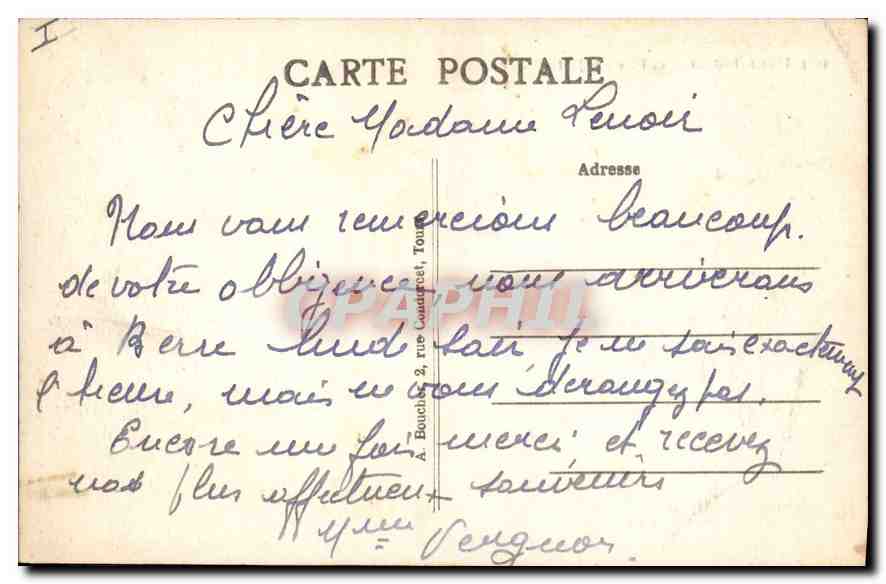 I
CARTE POSTALE
Chère Madame Lenoir
Adresse
Nous vous remercions beaucoup.
de votre obligence, nous arriverons
à Berre lundi soir je ne sais exactement
l'heure, mais ne vous dérangez pas.
Encore une fois merci et recevez
nos plus affectueux souvenirs
Mme Vergnon.
A. Boucher, 2, rue Condorcet, Tours
CPAPHIL